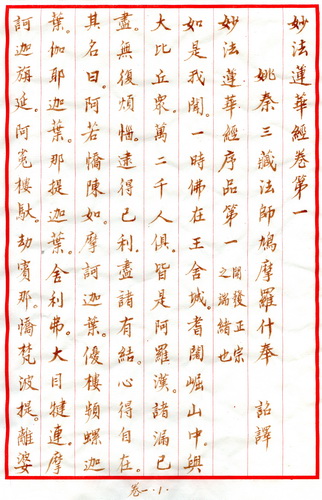 妙法蓮華經卷第一
姚秦三藏法師鳩摩羅什奉 詔譯
妙法蓮華經序品第一 開發正宗
之端緒也
如是我聞。一時佛在王舍城。耆闍崛山中。與
大比丘眾。萬二千人俱。皆是阿羅漢。諸漏已
盡。無復煩惱。逮得己利。盡諸有結。心得自在。
其名曰。阿若憍陳如。摩訶迦葉。優樓頻螺迦
葉。伽耶迦葉。那提迦葉。舍利弗。大目犍連。摩
訶迦旃延。阿㝹樓馱。劫賓那。憍梵波提。離婆
卷一.1.